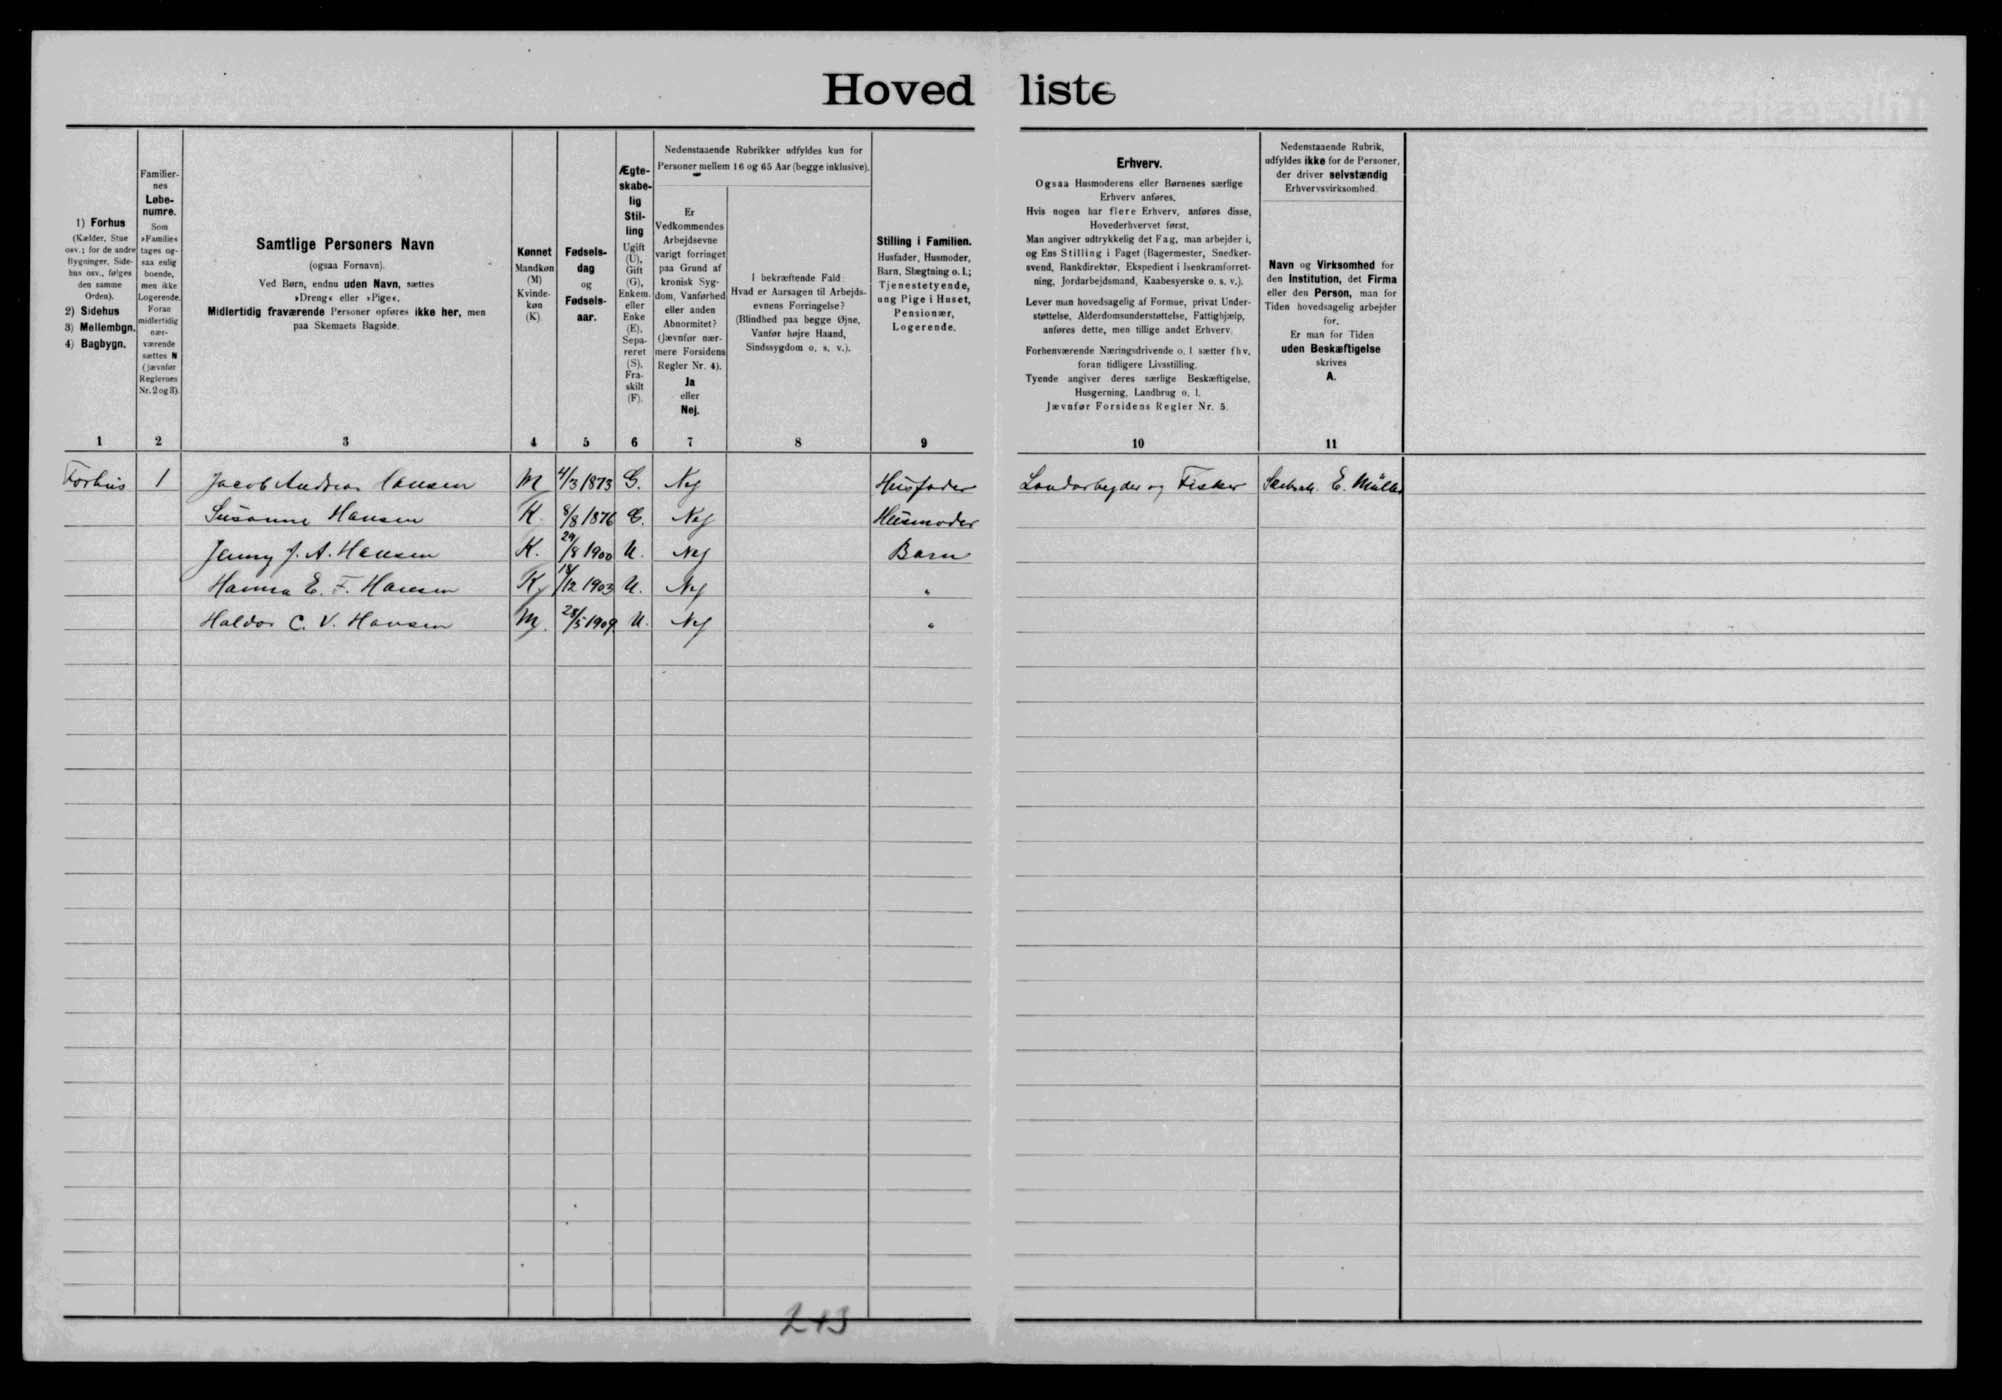 Hovedliste
1) Forhus
(Kælder, Stue
osv.; for de andre
Bygninger, Side-
hus osv., følges
den samme
Orden).
2) Sidehus
3) Mellembgn.
4) Bagbygn.
Familier-
nes
Løbe-
numre.
Som
»Familie«
tages og-
saa enlig
boende,
men ikke
Logerende.
Foran
midlertidig
nær-
værende
sættes N
(jævnfør
Reglernes
Nr. 2 og 3).
Samtlige Personers Navn
(ogsaa Fornavn).
Ved Børn, endnu uden Navn, sættes
»Dreng« eller »Pige«.
Midlertidig fraværende Personer opføres ikke her, men
paa Skemaets Bagside.
Kønnet
Mandkøn
(M)
Kvinde-
køn
(K).
Fødsels-
dag
og
Fødsels-
aar.
Ægte-
skabe-
lig
Stil-
ling
Ugift
(U),
Gift
(G),
Enkem.
eller
Enke
(E),
Sepa-
reret
(S),
Fra-
skilt
(F).
Nedenstaaende Rubrikker udfyldes kun for
Personer mellem 16 og 65 Aar (begge inklusive).
Er
Vedkommendes
Arbejdsevne
varigt forringet
paa Grund af
kronisk Syg-
dom, Vanførhed
eller anden
Abnormitet?
(Jævnfør nær-
mere Forsidens
Regler Nr. 4).
Ja
eller
Nej.
I bekræftende Fald:
Hvad er Aarsagen til Arbejds-
evnens Forringelse?
(Blindhed paa begge Øjne,
Vanfør højre Haand,
Sindssygdom o. s. v.).
Stilling i Familien.
Husfader, Husmoder,
Barn, Slægtning o. l.;
Tjenestetyende,
ung Pige i Huset,
Pensionær,
Logerende.
Erhverv.
Ogsaa Husmoderens eller Børnenes særlige
Erhverv anføres.
Hvis nogen har flere Erhverv, anføres disse,
Hovederhvervet først.
Man angiver udtrykkelig det Fag, man arbejder i,
og Ens Stilling i Faget (Bagermester, Snedker-
svend, Bankdirektør, Ekspedient i Isenkramforret-
ning, Jordarbejdsmand, Kaabesyerske o. s. v.).
Lever man hovedsagelig af Formue, privat Under-
støttelse, Alderdomsunderstøttelse, Fattighjælp,
anføres dette, men tillige andet Erhverv.
Forhenværende Næringsdrivende o. l. sætter fhv.
foran tidligere Livsstilling.
Tyende angiver deres særlige Beskæftigelse,
Husgerning, Landbrug o. l.
Jævnfør Forsidens Regler Nr. 5.
Nedenstaaende Rubrik,
udfyldes ikke for de Personer,
der driver selvstændig
Erhvervsvirksomhed.
Navn og Virksomhed for
den Institution, det Firma
eller den Person, man for
Tiden hovedsagelig arbejder
for.
Er man for Tiden
uden Beskæftigelse
skrives
A.
1 2 3 4 5 6 7 8 9 10 11
Forhus 1 Jacob Andreas Hansen M 4/3 1873 G. Nej Husfader Landarbejder og Fisker E. Müller
Susanne Hansen K. 8/8 1876 G. Nej Husmoder
Jenny J. A. Hansen K. 29/8 1900 U. Nej Barn
Hanna E. F. Hansen K. 18/12 1903 U. Nej "
Haldor C. V. Hansen M. 28/5 1909. U. Nej "
213